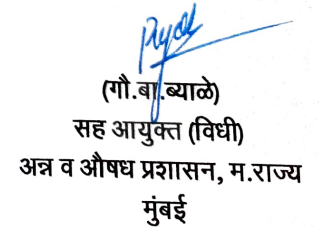 (गौ.बा.ब्याळे)
सह आयुक्त (विधी)
अन्न व औषध प्रशासन, म.राज्य
मुंबई